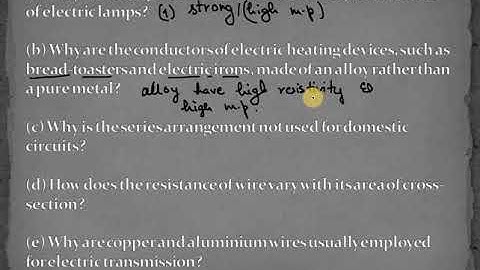 of electric lamps? (1) strong/(high m.p)
(b) Why are the conductors of electric heating devices, such as
bread-toasters and electric irons, made of an alloy rather than
a pure metal? alloy have high resistivity &
high m.p.
(c) Why is the series arrangement not used for domestic
circuits?
(d) How does the resistance of wire vary with its area of cross-
section?
(e) Why are copper and aluminium wires usually employed
for electric transmission?